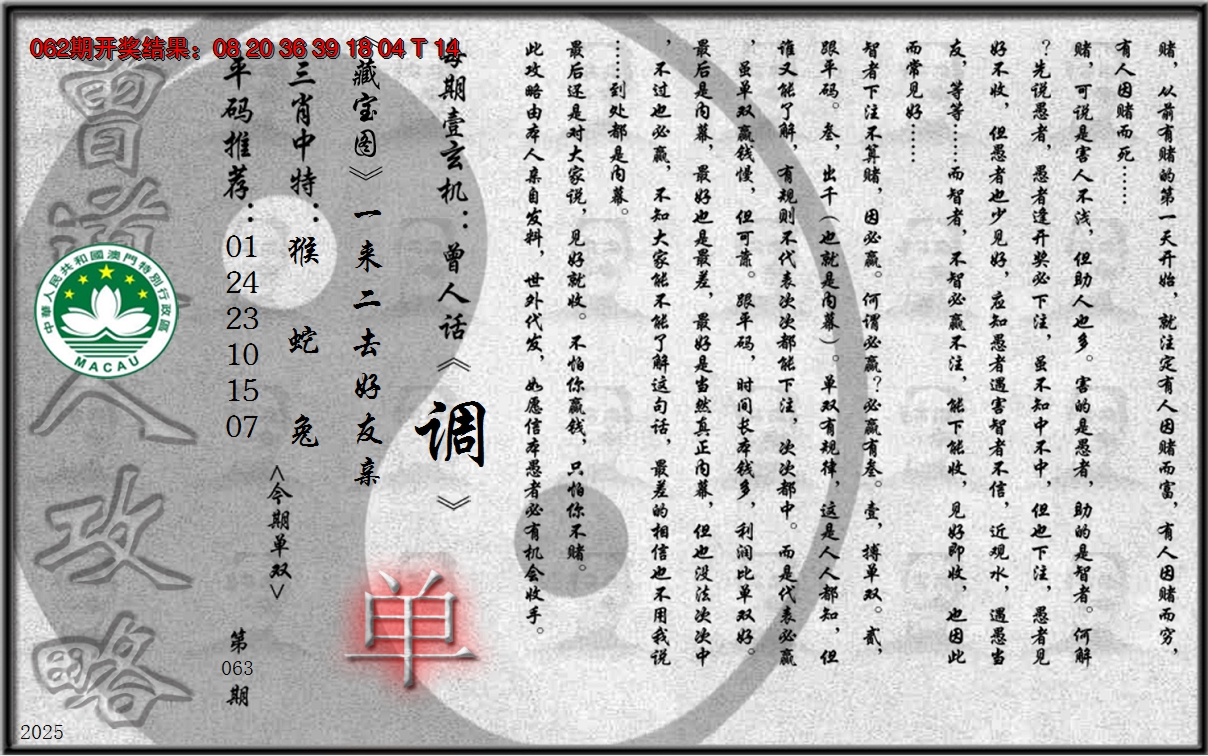 062期开奖结果：08 20 36 39 18 04 T 14
赌，从前有赌的第一天开始，就注定有人因赌而富，有人因赌而穷，
有人因赌而死……
赌，可说是害人不浅，但助人也多。害的是愚者，助的是智者。何解
？先说愚者，愚者逢开奖必下注，虽不知中不中，但也下注，愚者见
好不收，但愚者也少见好，应知愚者遇害智者不信，近观水，遇愚当
友，等等……而智者，不智必赢不注，能下能收，见好即收，也因此
而常见好……
智者下注不算赌，因必赢。何谓必赢？必赢有叁。壹，搏单双。贰，
跟平码。叁，出千（也就是内幕）。单双有规律，这是人人都知，但
谁又能了解，有规则不代表次次都能下注，次次都中。而是代表必赢
，虽单双赢钱慢，但可靠。跟平码，时间长本钱多，利润比单双好。
最后是内幕，最好也是最差，最好是当然真正内幕，但也没法次次中
，不过也必赢，不知大家能不能了解这句话，最差的相信也不用我说
……到处都是内幕。
最后还是对大家说，见好就收。不怕你赢钱，只怕你不赌。
此攻略由本人亲自发料，世外代发，如愿信本愚者必有机会收手。
每期壹玄机：曾人话《调》
《藏宝图》一来二去好友亲
单
三肖中特：猴 蛇 兔
<今期单双>
平码推荐：01 24 23 10 15 07
第
063
期
曾道人攻略
中華人民共和國澳門特別行政區
MACAU
2025